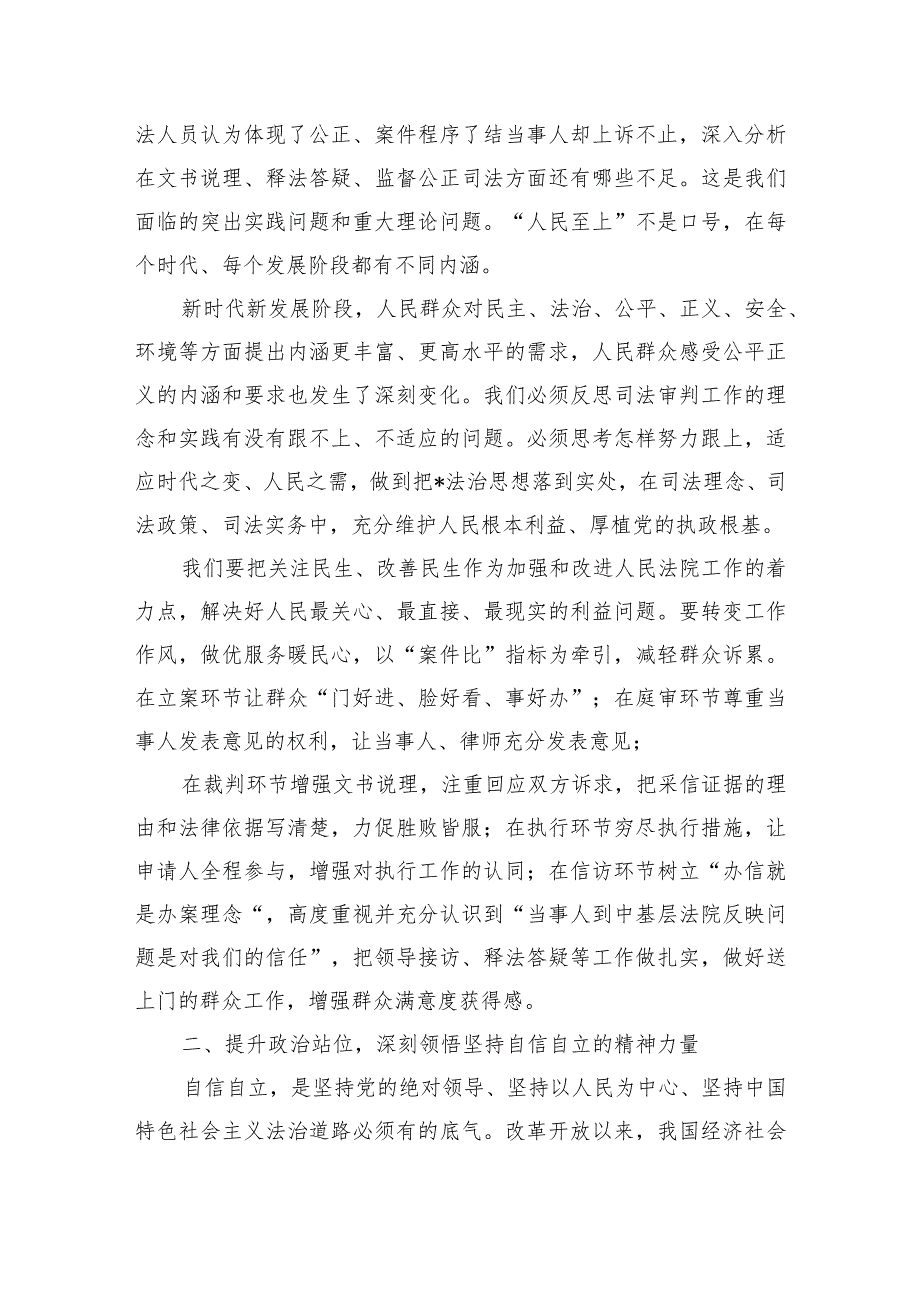 法人员认为体现了公正、案件程序了结当事人却上诉不止，深入分析
在文书说理、释法答疑、监督公正司法方面还有哪些不足。这是我们
面临的突出实践问题和重大理论问题。“人民至上”不是口号，在每
个时代、每个发展阶段都有不同内涵。
新时代新发展阶段，人民群众对民主、法治、公平、正义、安全、
环境等方面提出内涵更丰富、更高水平的需求，人民群众感受公平正
义的内涵和要求也发生了深刻变化。我们必须反思司法审判工作的理
念和实践有没有跟不上、不适应的问题。必须思考怎样努力跟上，适
应时代之变、人民之需，做到把*法治思想落到实处，在司法理念、司
法政策、司法实务中，充分维护人民根本利益、厚植党的执政根基。
我们要把关注民生、改善民生作为加强和改进人民法院工作的着
力点，解决好人民最关心、最直接、最现实的利益问题。要转变工作
作风，做优服务暖民心，以“案件比”指标为牵引，减轻群众诉累。
在立案环节让群众“门好进、脸好看、事好办”；在庭审环节尊重当
事人发表意见的权利，让当事人、律师充分发表意见；
在裁判环节增强文书说理，注重回应双方诉求，把采信证据的理
由和法律依据写清楚，力促胜败皆服；在执行环节穷尽执行措施，让
申请人全程参与，增强对执行工作的认同；在信访环节树立“办信就
是办案理念“，高度重视并充分认识到“当事人到中基层法院反映问
题是对我们的信任”，把领导接访、释法答疑等工作做扎实，做好送
上门的群众工作，增强群众满意度获得感。
二、提升政治站位，深刻领悟坚持自信自立的精神力量
自信自立，是坚持党的绝对领导、坚持以人民为中心、坚持中国
特色社会主义法治道路必须有的底气。改革开放以来，我国经济社会